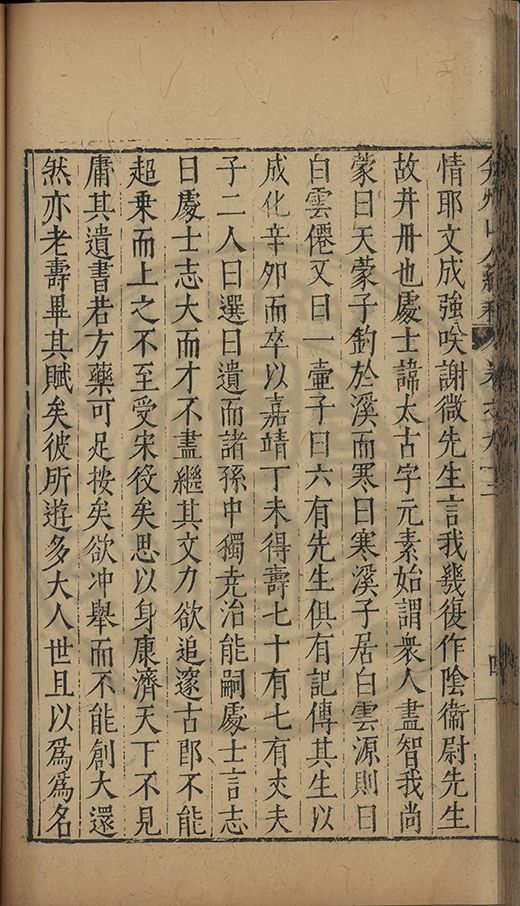 弇州山人續稿 卷之九十三 四
情耶文成強咲謝微先生言我幾復作陰衞尉先生
故井毌也處士諱太古字元素始謂衆人盡智我尚
蒙曰天蒙子釣於溪而寒曰寒溪子居白雲源則曰
白雲僊又曰一壷子曰六有先生俱有記傳其生以
成化辛夘而卒以嘉靖丁未得壽七十有七有丈夫
子二人曰選曰遺而諸孫中獨尭治能嗣處士言志
曰處士志大而才不盡繼其文力欲追邃古郎不能
超乗而上之不至受宋役矣思以身康濟天下不見
庸其遺書若方藥可足按矣欲冲舉而不能創大還
然亦老壽畢其賦矣彼所遊多大人世且以爲爲名